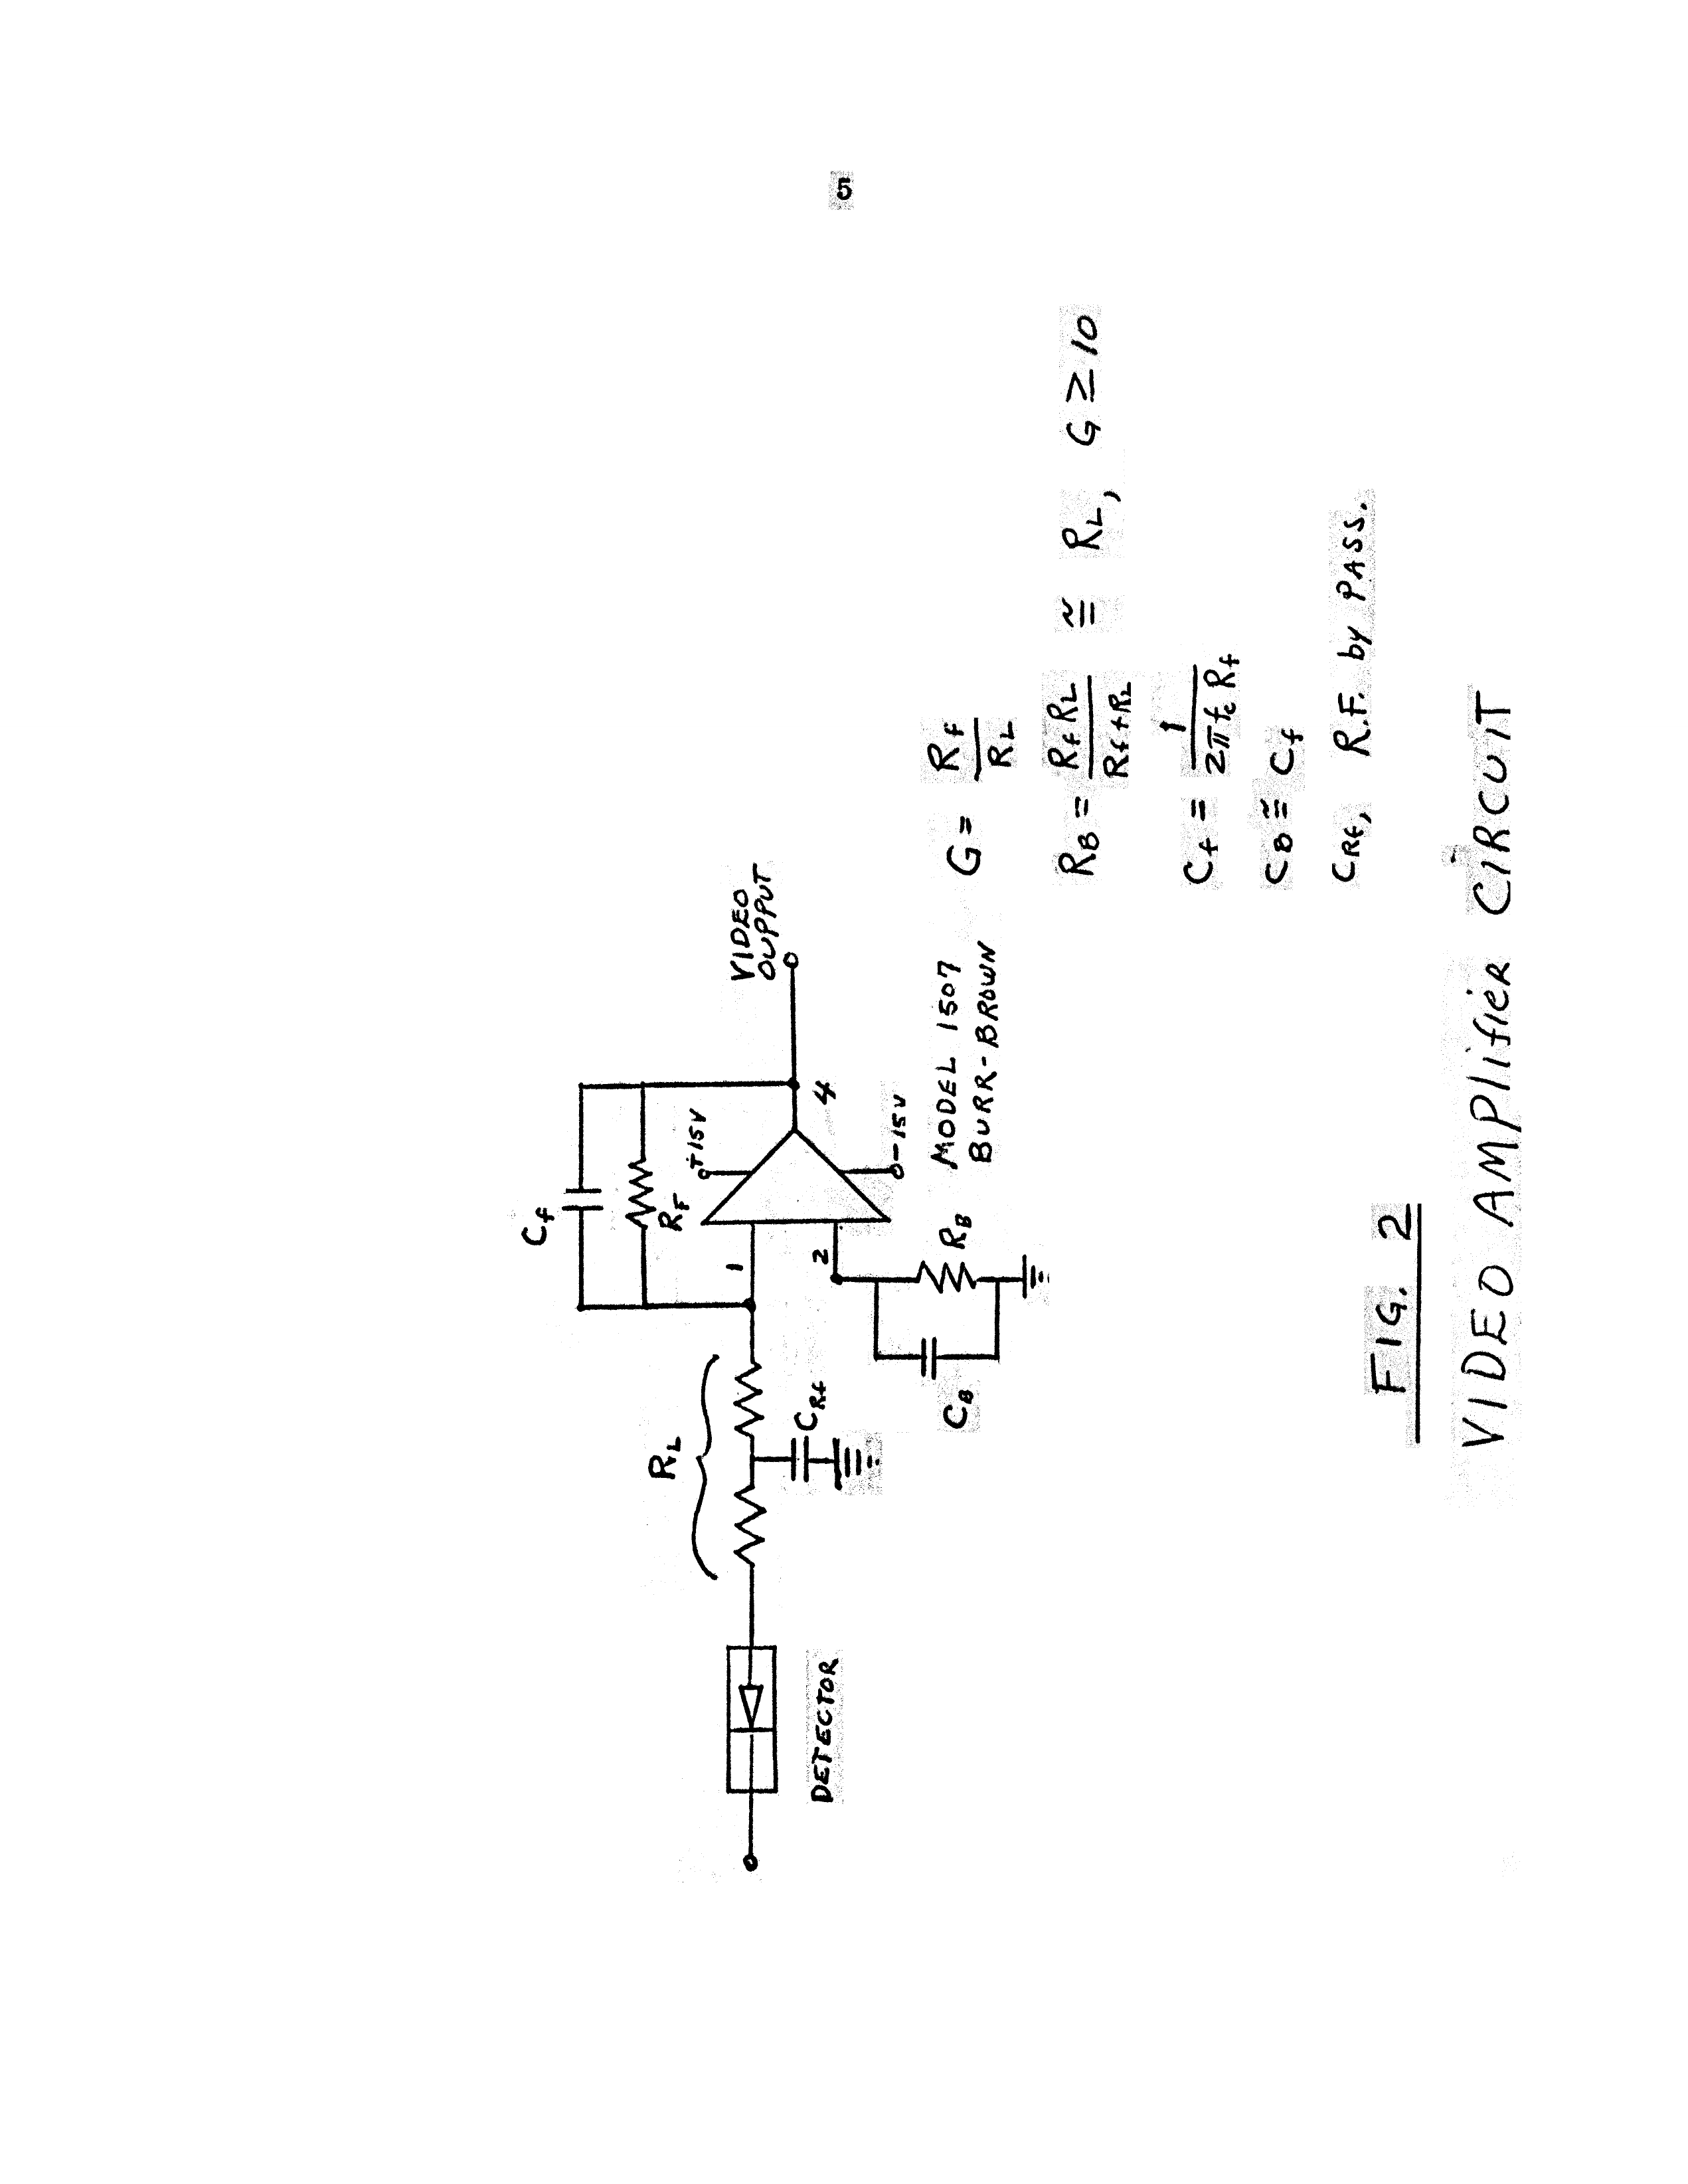 5
C_f
R_F
+15V
VIDEO
OUPPUT
R_L
1
4
2
-15V
C_Rf
DETECTOR
R_B
C_B
MODEL 1507
BURR-BROWN
G = R_f / R_L
R_B = R_f R_L / R_f + R_L ≅ R_L, G ≥ 10
C_f = 1 / 2π f_c R_f
C_B ≅ C_f
C_Rf, R.F. by PASS.
FIG. 2
VIDEO AMPlifieR CIRCUIT